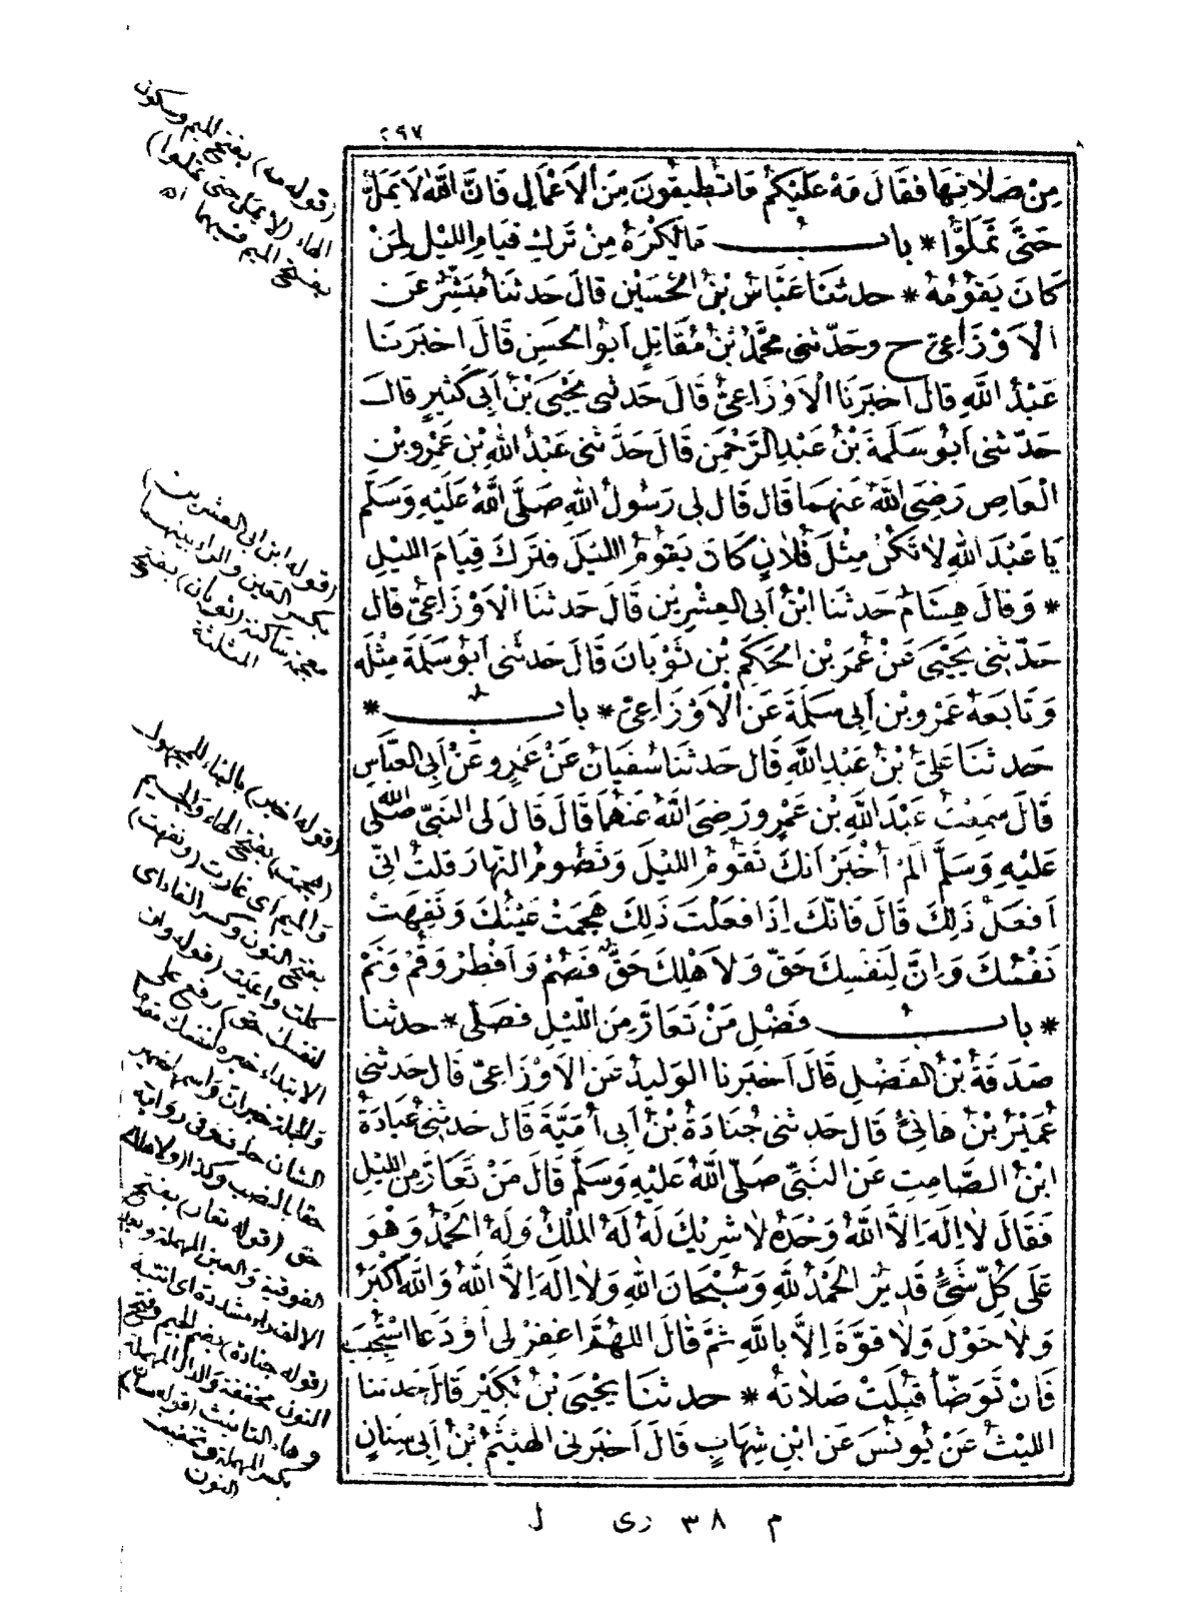 ٢٩٧
مِنْ صَلَاتِهَا فَقَالَ مَهْ عَلَيْكُمْ مَا تُطِيقُونَ مِنَ الْأَعْمَالِ فَإِنَّ اللَّهَ لَا يَمَلُّ
حَتَّى تَمَلُّوا * بابُ مَا يُكْرَهُ مِنْ تَرْكِ قِيَامِ اللَّيْلِ لِمَنْ
كَانَ يَقُومُهُ * حدثنَا عَبَّاسُ بْنُ الْحُسَيْنِ قَالَ حَدثنَا مُبَشِّرٌ عَن
الْأَوْزَاعِيِّ ح وحَدّثنى مُحَمَّدُ بْنُ مُقَاتِلٍ أَبُو الْحَسَنِ قَالَ أخْبَرَنَا
عَبْدُ اللَّهِ قَالَ أَخْبَرَنَا الْأَوْزَاعِيُّ قَالَ حَدثنى يَحْيَى بْنُ أَبِي كَثِيرٍ قالَ
حَدّثنى أَبُو سَلَمَةَ بْنُ عَبْدِ الرَّحْمَنِ قَالَ حَدَّثنى عَبْدُ اللهِ بْنُ عَمْرِو بْنِ
الْعَاصِ رَضِيَ اللَّهُ عَنْهُمَا قَالَ قَالَ لِي رَسُولُ اللهِ صَلَّى اللَّهُ عَلَيْهِ وَسَلَّمَ
يَا عَبْدَ اللهِ لَا تَكُنْ مِثْلَ فُلَانٍ كَانَ يَقُومُ اللَّيْلَ فَتَرَكَ قِيَامَ اللَّيْلِ
* وَقَالَ هِشَامٌ حَدثنَا ابْنُ أَبِي الْعِشْرِينَ قَالَ حَدثنَا الْأَوْزَاعِيُّ قَالَ
حَدّثنى يَحْيَى عَنْ عُمَرَ بْنِ الْحَكَمِ بْنِ ثَوْبَانَ قَالَ حَدثنى أَبُو سَلَمَةَ مِثْلَهُ
وَتَابَعَهُ عَمْرُو بْنُ أَبِي سَلَمَةَ عَنِ الْأَوْزَاعِيِّ * بابٌ *
حَدثنَا عَلِيُّ بْنُ عَبْدِ اللَّهِ قَالَ حَدثنَا سُفْيَانُ عَنْ عَمْرٍو عَنْ أَبِي الْعَبَّاسِ
قَالَ سَمِعْتُ عَبْدَ اللَّهِ بْنَ عَمْرٍو رَضِيَ اللَّهُ عَنْهُمَا قَالَ قَالَ لِي النَّبِيُّ صَلَّى اللَّهُ
عَلَيْهِ وَسَلَّمَ أَلَمْ أُخْبَرْ أَنَّكَ تَقُومُ اللَّيْلَ وَتَصُومُ النَّهَارَ قُلْتُ إِنِّي
أَفْعَلُ ذَلِكَ قَالَ فَإِنَّكَ إِذَا فَعَلْتَ ذَلِكَ هَجَمَتْ عَيْنُكَ وَنَفِهَتْ
نَفْسُكَ وَإِنَّ لِنَفْسِكَ حَقٌّ وَلِأَهْلِكَ حَقٌّ فَصُمْ وَأَفْطِرْ وَقُمْ وَنَمْ
* بابُ فَضْلِ مَنْ تَعَارَّ مِنَ اللَّيْلِ فَصَلَّى * حدثنا
صَدَقَةُ بْنُ الْفَضْلِ قَالَ أَخْبَرَنَا الْوَلِيدُ عَنِ الْأَوْزَاعِيِّ قَالَ حَدثنى
عُمَيْرُ بْنُ هَانِئٍ قَالَ حَدثنى جُنَادَةُ بْنُ أَبِي أُمَيَّةَ قَالَ حَدثنى عُبَادَةُ
ابْنُ الصَّامِتِ عَنِ النَّبِيِّ صَلَّى اللَّهُ عَلَيْهِ وَسَلَّمَ قَالَ مَنْ تَعَارَّ مِنَ اللَّيْلِ
فَقَالَ لَا إِلَهَ إِلَّا اللَّهُ وَحْدَهُ لَا شَرِيكَ لَهُ لَهُ الْمُلْكُ وَلَهُ الْحَمْدُ وَهُوَ
عَلَى كُلِّ شَيْءٍ قَدِيرٌ الْحَمْدُ لِلَّهِ وَسُبْحَانَ اللهِ وَلَا إِلَهَ إِلَّا اللَّهُ وَاللَّهُ أَكْبَرُ
وَلَا حَوْلَ وَلَا قُوَّةَ إِلَّا بِاللَّهِ ثُمَّ قَالَ اللَّهُمَّ اغْفِرْ لِي أَوْ دَعَا اسْتُجِيبَ
فَإِنْ تَوَضَّأَ قُبِلَتْ صَلَاتُهُ * حدثنَا يَحْيَى بْنُ بُكَيْرٍ قَالَ حَدثنَا
اللَّيْثُ عَنْ يُونُسَ عَنِ ابْنِ شِهَابٍ قَالَ أَخْبَرَنِي الْهَيْثَمُ بْنُ أَبِي سِنَانٍ
(قوله مه) بفتح الميم وسكون
الهاء (لا يمل حتى تملوا)
بفتح الميم فيهما اه
(قوله ابن ابى العشرين)
بكسر العين والراء بينهما
معجمة ساكنة (ثوبان) بفتح
المثلثة
(قوله اخبر) بالبناء للمجهول
(هجمت) بفتح الهاء والجيم
والميم اى غارت (ونفهت)
بفتح النون وكسر الفاء اى
كلت واعيت (قوله وان
لنفسك حق) رفع على
الابتداء خبره لنفسك مقدما
والجملة خبر ان واسمها ضمير
الشان حذف وفى رواية
حقا بالنصب وكذا (ولاهلك
حق (قوله تعار) بفتح
الفوقية والعين المهملة وبعد
الالف راء مشددة اى انتبه
(قوله جنادة) بضم الجيم وفتح
النون مخففة والدال المهملة
وهاء التانيث (قوله سنان)
بكسر المهملة وتخفيف
النون
م ٣٨ رى ل